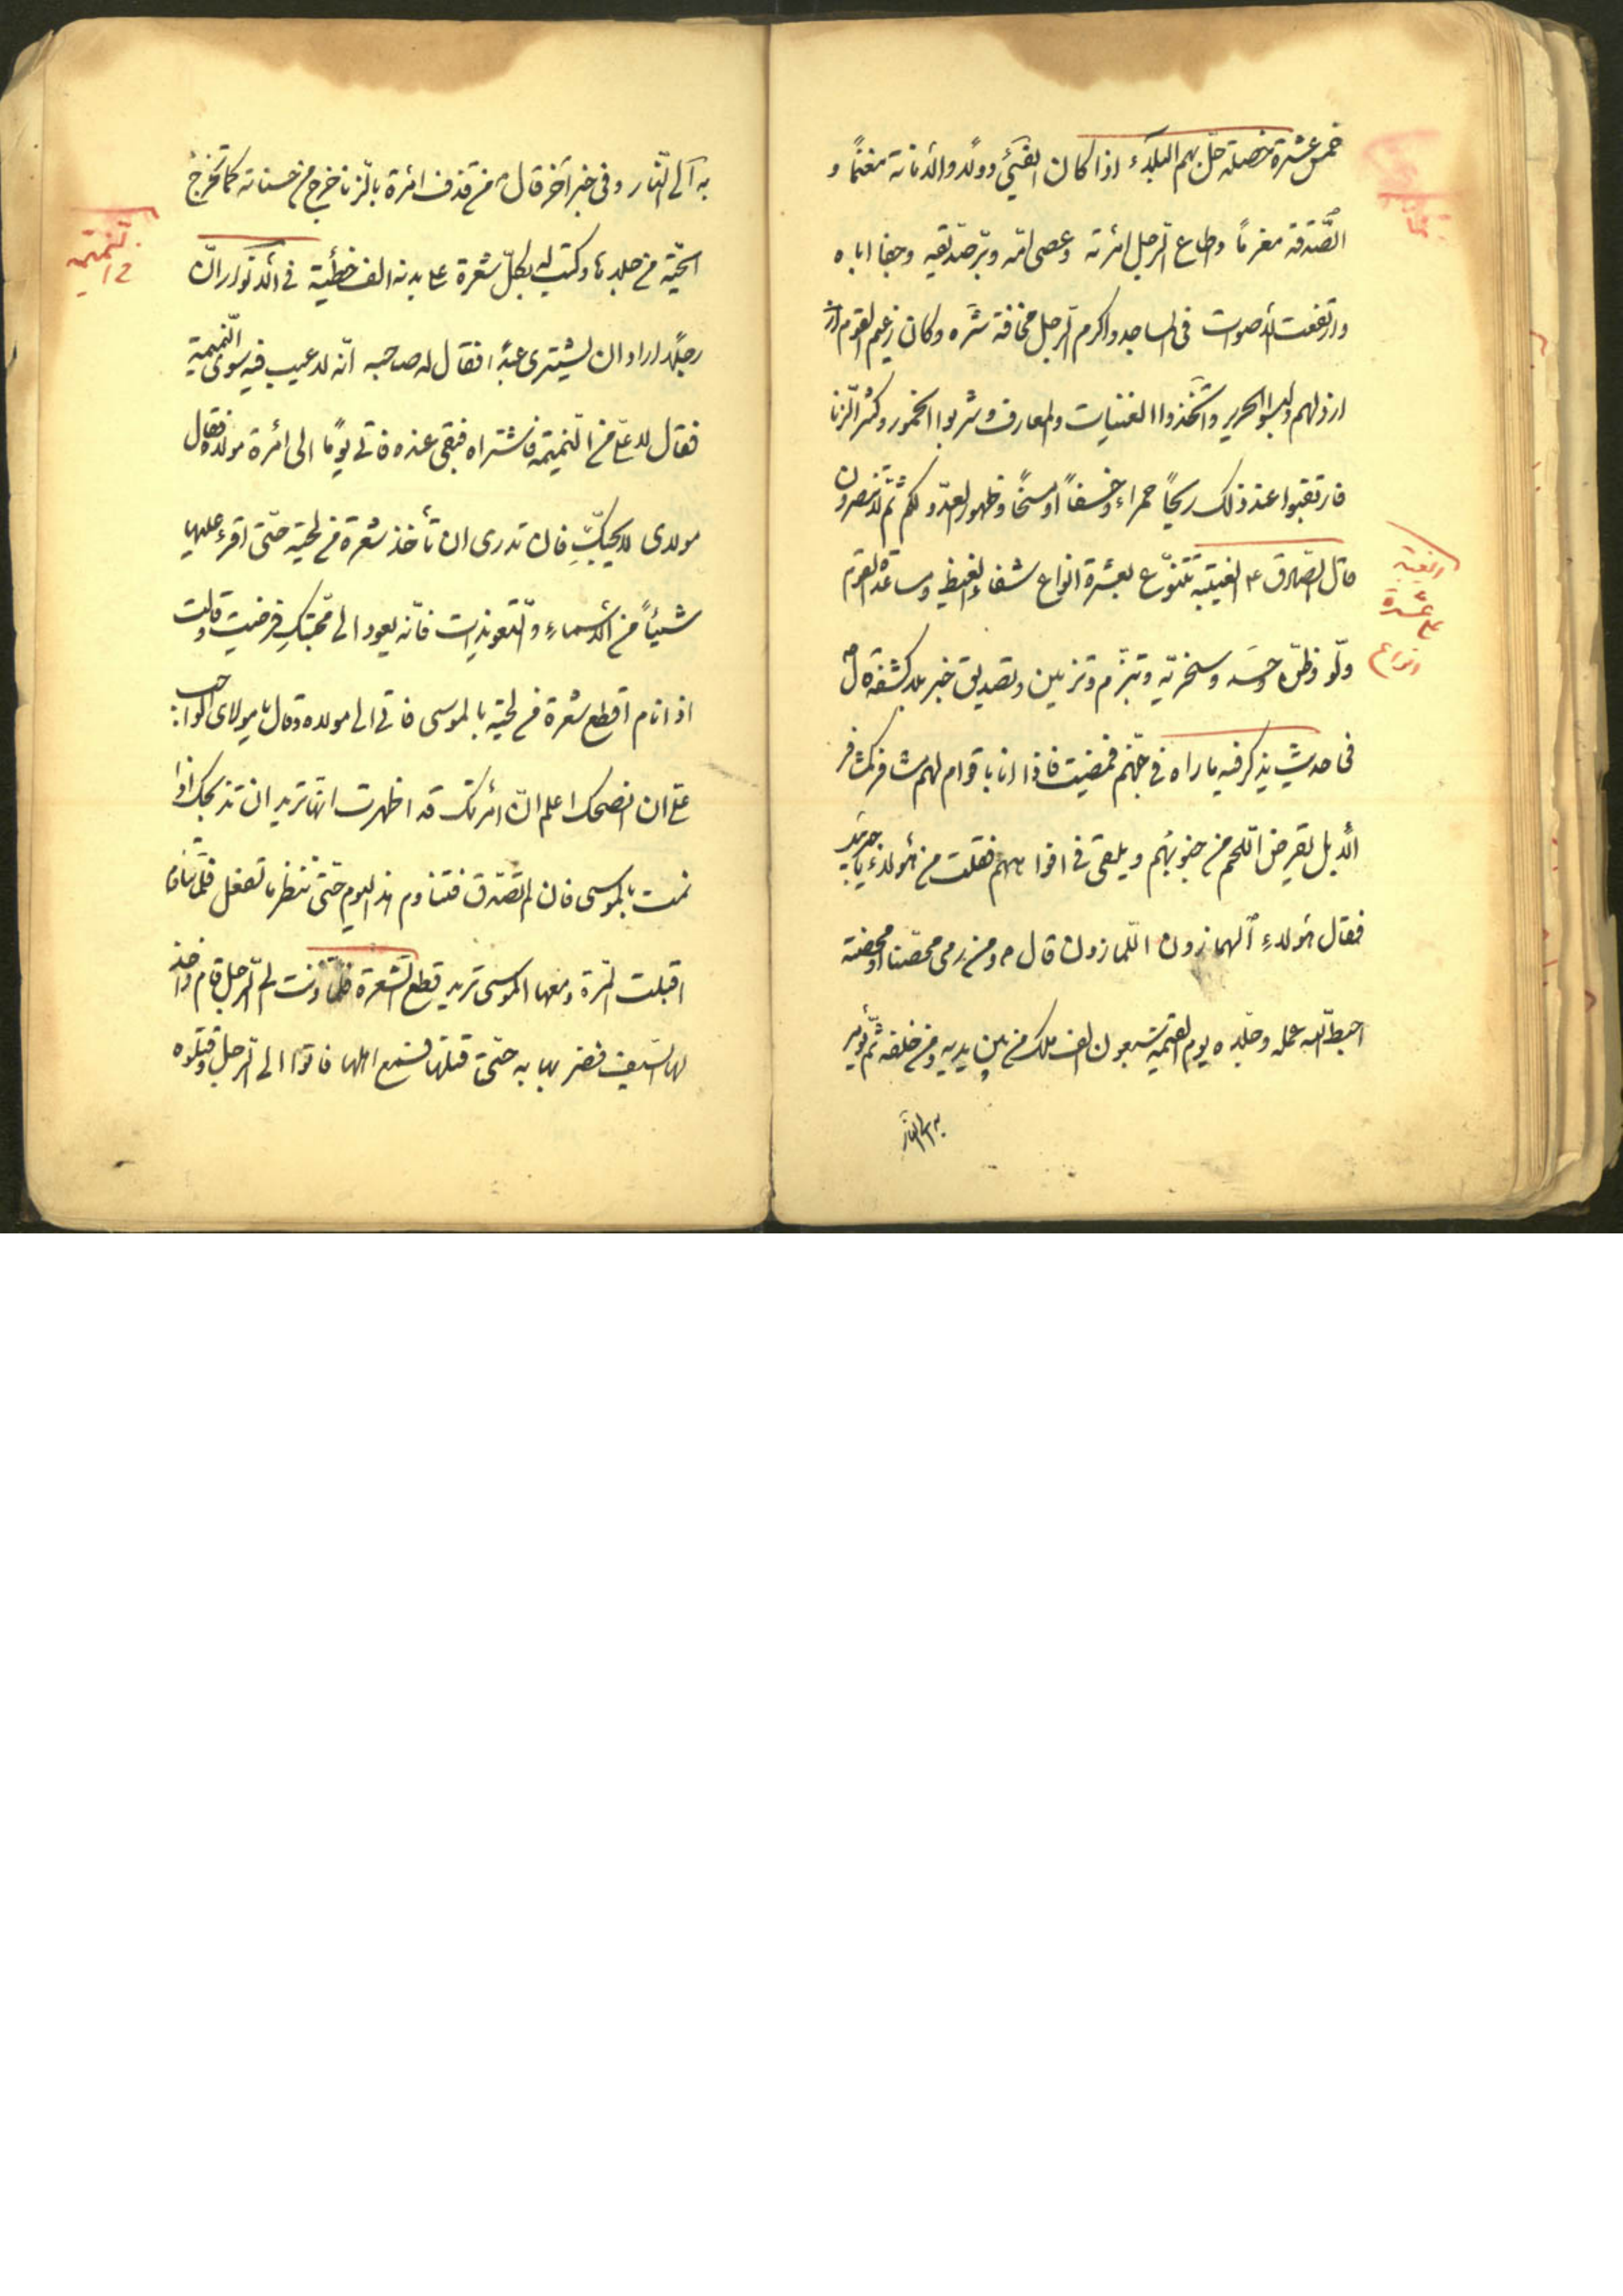 خمس عشرة خصلة حلّ بهم البلاء اذا كان الفيئ دولاً والأمانة مغنمًا و
الصّدقة مغرمًا واطاع الرّجل امرئته وعصى امّه وبرّ صديقه وجفا اباه
وارتفعت الأصوات فى المساجد واكرم الرّجل مخافة شرّه وكان زعيم القوم
ارذلهم ولبسوا الحرير واتّخذوا المغنّيات والمعازف وشربوا الخمور وكثر الزّنا
فارتقبوا عند ذلك ريحًا حمراء وخسفًا او مسخًا وظهور العدّو لكم ثمّ لا تنصرون
قال الصّادق ع الغيبة تتنوّع بعشرة انواع شفاء الغيظ ومساعدة القوم
وظنّ وحسد وسخريّة وتبرّم وتزيين وتصديق خبر بلا كشفه قال ص
فى حديث يذكر فيه ما راه فى جهنّم فمضيت فاذا انا باقوام لهم مشافر كمشافر
الأبل يقرض اللّحم من جنوبهم ويلقى فى افواههم فقلت من هؤلاء يا جبرئيل
فقال هؤلاء الهمّازون اللّمازون قال ص ومن رمى محصنا او محصنة
احبط اللّه عمله وجلّده يوم القيمة سبعون الف ملك من بين يديه ومن خلفه ثمّ يؤمر
به الى النّار
الغيبة
على عشرة
انواع
به الى النّار وفى خبر آخر قال ص من قذف امرئة بالزّنا خرج من حسناته كما تخرج
الحيّة من جلدها وكتب له بكلّ شعرة على بدنه الف خطيئة فى الأنوار انّ
رجلاً اراد ان يشترى عبدًا فقال له صاحبه انّه لا عيب فيه سوى النّميمة
فقال لا علىّ من النّميمة فاشتراه فبقى عنده فاتى يومًا الى امرئة مولاه فقال
مولاى لا يحبّك فان تدرى ان تأخذ شعرة من لحيته حتّى اقرء عليها
شيئًا من الأسماء والتّعويذات فانّه يعود الى محبّتك فرضيت وقالت
اذا نام اقطع شعرة من لحيته بالموسى فاتى الى مولاه وقال يا مولاى الواجب
علىّ ان انصحك اعلم انّ امرئتك قد اظهرت انّها تريد ان تذبحك اذا
نمت بالموسى فان لم تصدّق فتناوم هذا اليوم حتّى تنظر ما تفعل فلمّا تناوم
اقبلت المرئة ومعها الموسى تريد قطع الشّعرة فلمّا دنت الى الرّجل قام واخذ
لها السّيف فضربها به حتّى قتلها فسمع اهلها فاتوا الى الرّجل وقتلوه
النّميمة